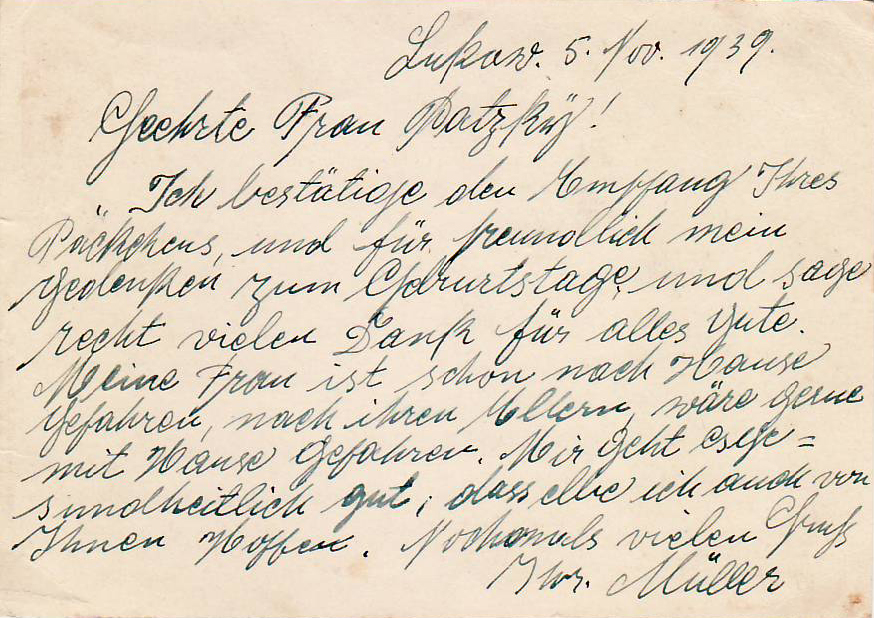 Lukow. 5. Nov. 1939.
Geehrte Frau Patzky!
Ich bestätige den Empfang Ihres
Päckchens, und für freundlich mein
Gedenken zum Geburtstage, und sage
recht vielen Dank für alles Gute.
Meine Frau ist schon nach Hause
Gefahren, nach ihren Eltern, wäre gerne
mit Hause Gefahren. Mir geht es ge=
sundheitlich gut, dasselbe ich auch von
Ihnen Hoffen. Nochmals vielen Gruß
Ihr. Müller